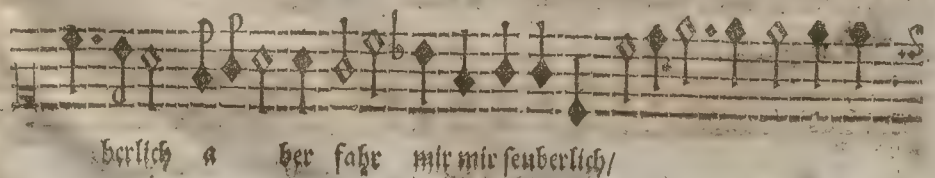 berlich a ber fahr mir mir seuberlich/